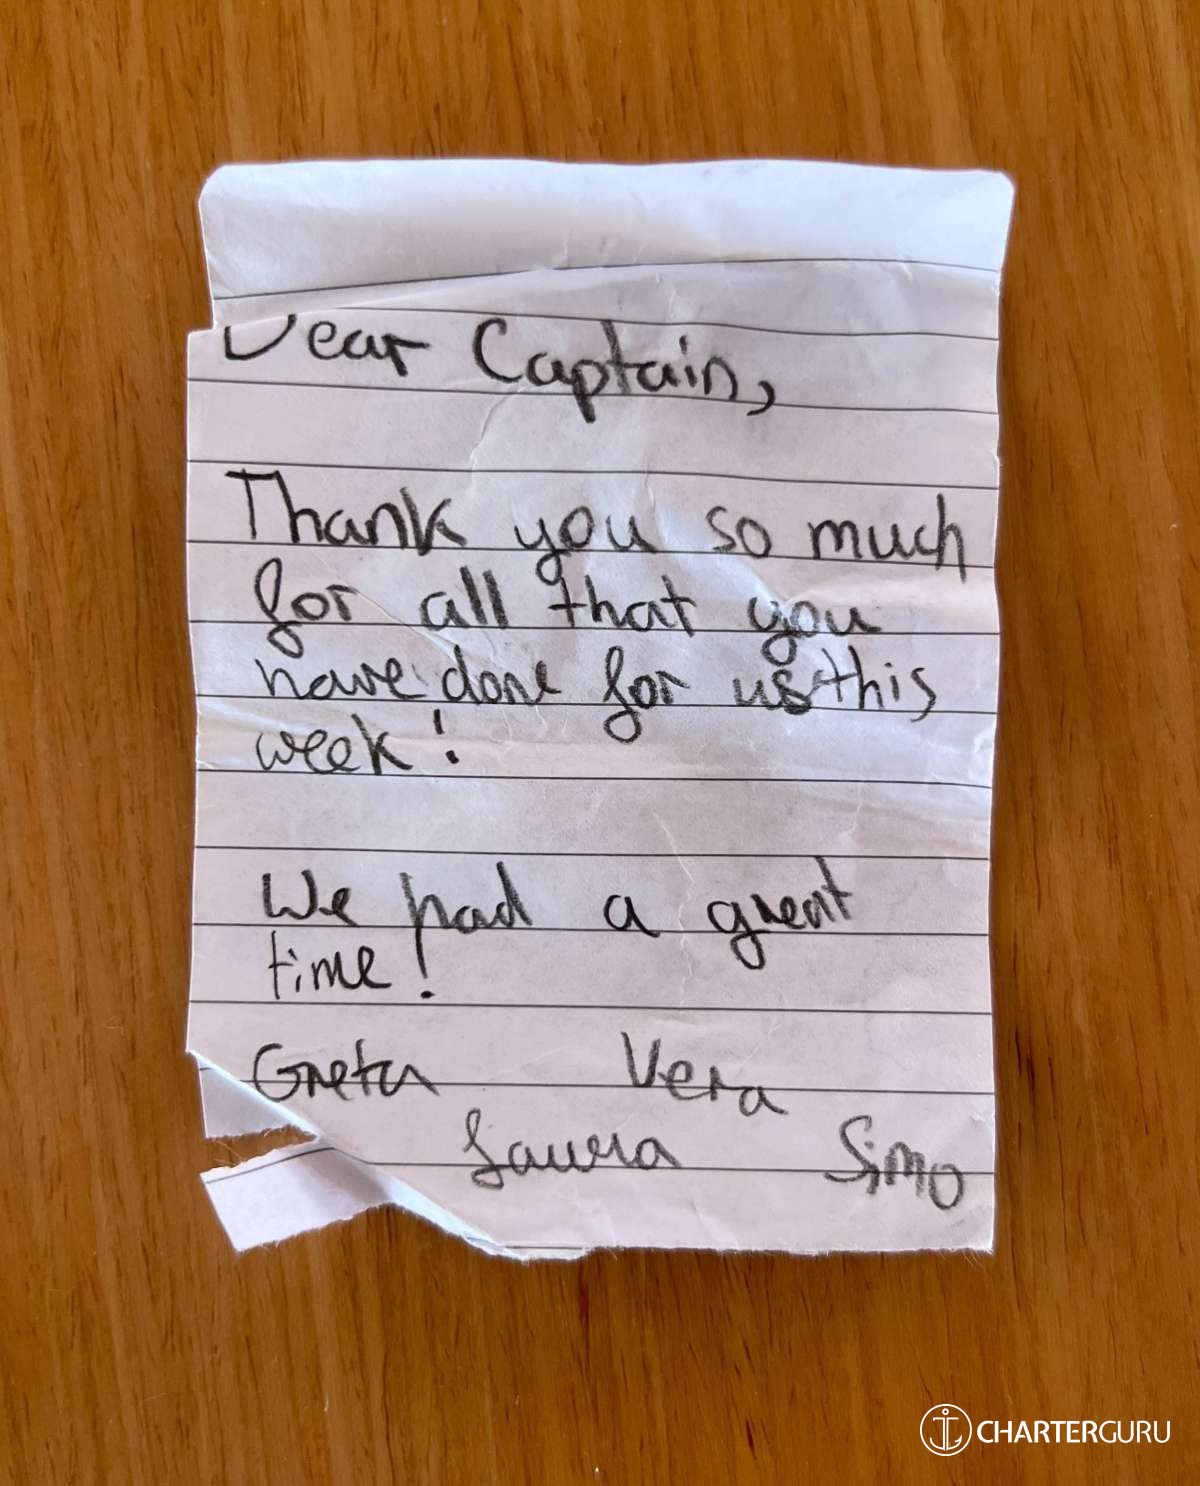 Dear Captain,
Thank you so much
for all that you
have done for us this
week!
We had a great
time!
Greta Vera
Laura Simo
CHARTERGURU